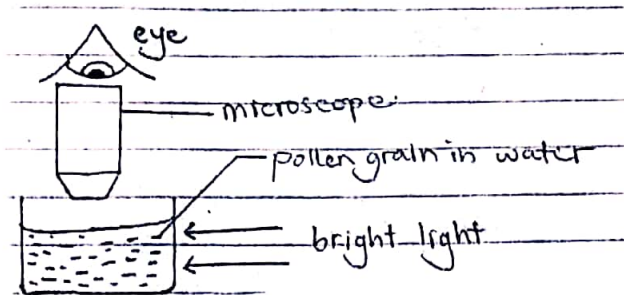 eye
microscope.
pollen grain in water
bright light